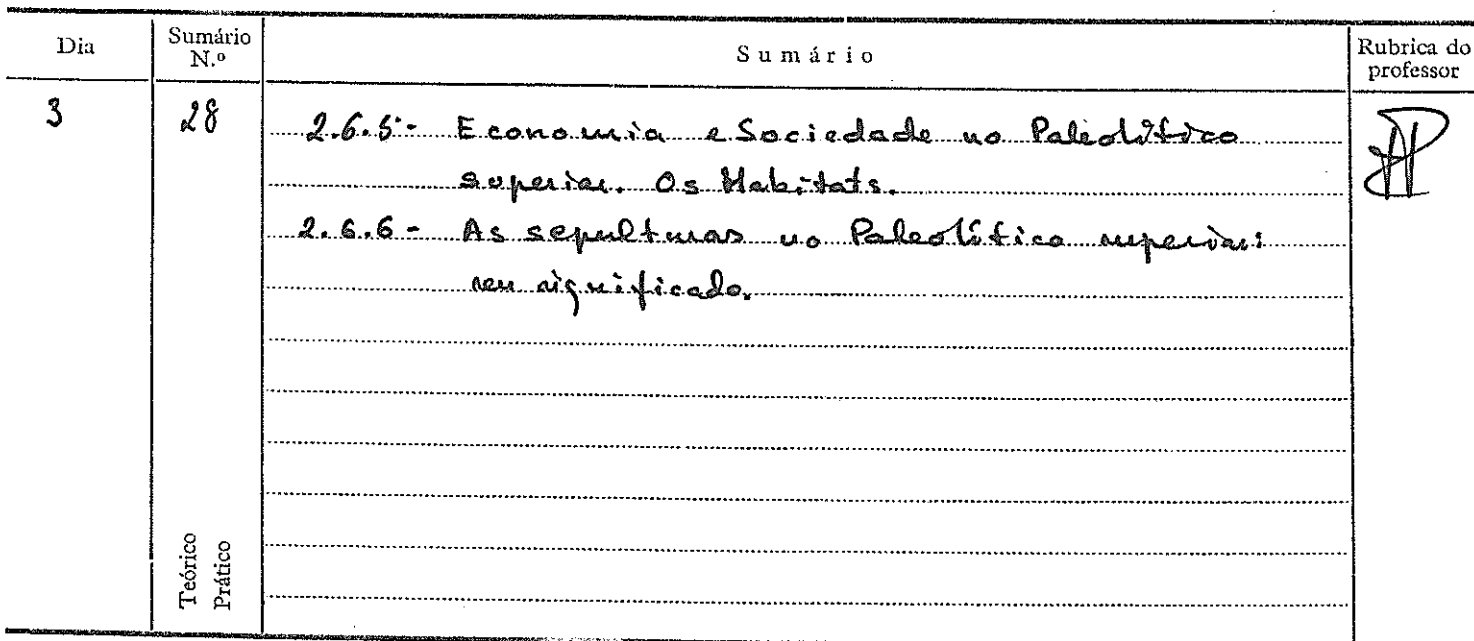 Dia
Sumário
N.º
Sumário
Rubrica do
professor
3
28
2.6.5- Economia e Sociedade no Paleolítico
superior. Os Habitats.
2.6.6- As sepulturas no Paleolítico superior:
seu significado.
Teórico
Prático